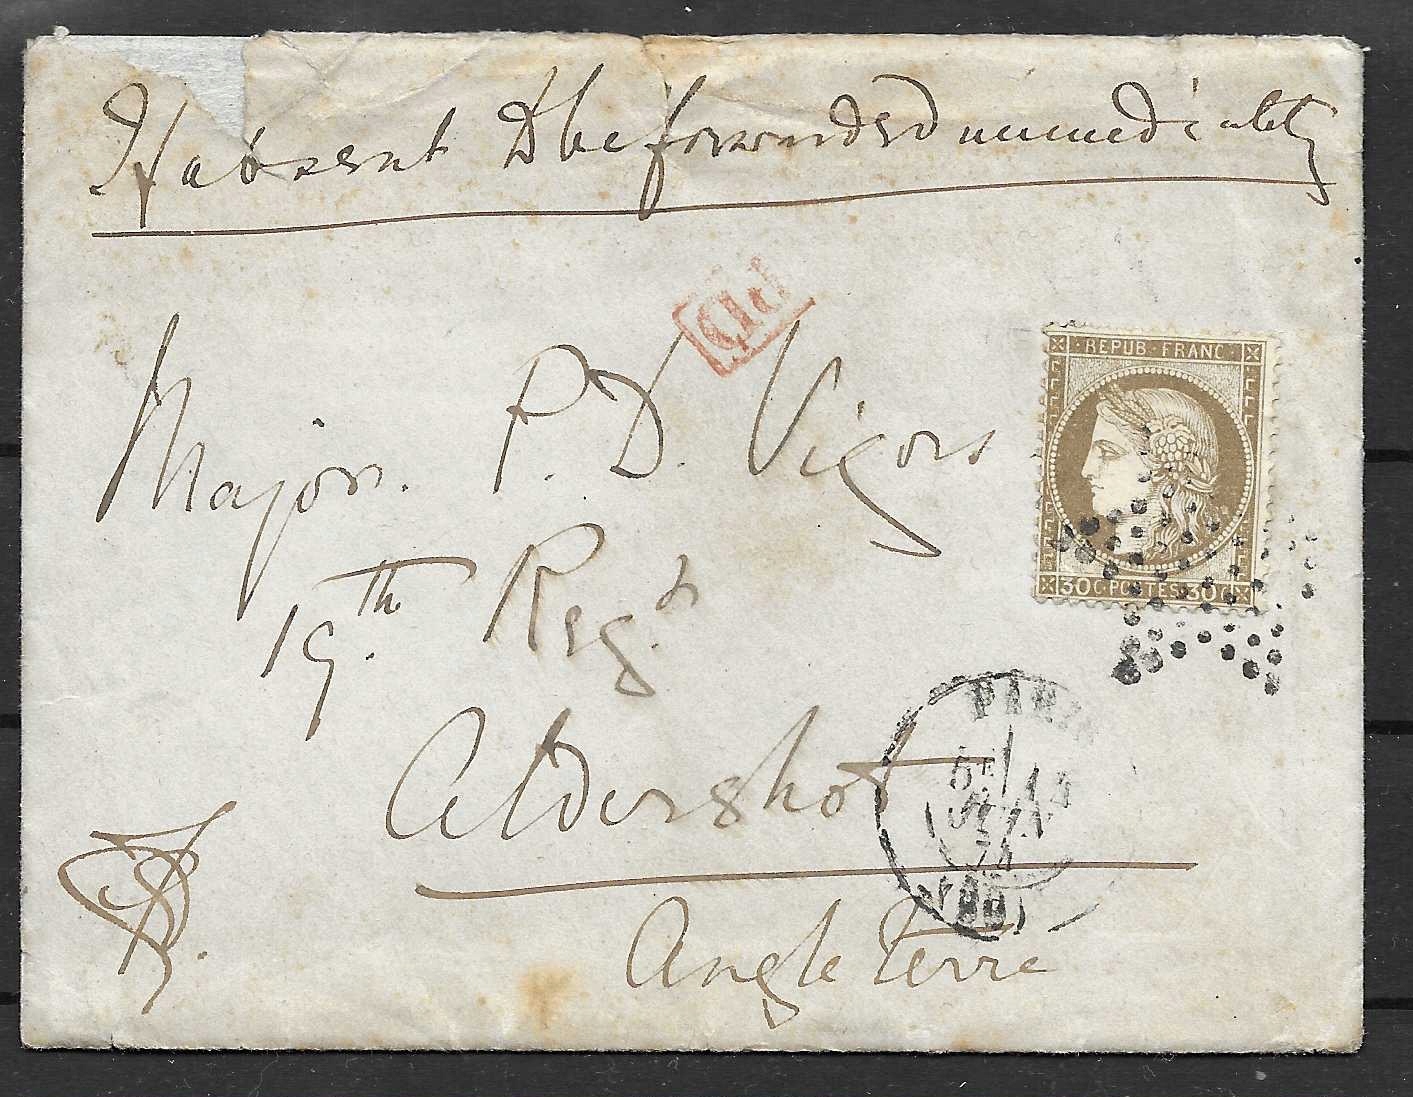 If absent to be forwarded immediately
PD
Major. P. D. Vigors
REPUB. FRANC.
30 C. POSTES. 30 C.
19th. Regt
Aldershot
PARIS
5E
JUIN
74
(60)
Angleterre